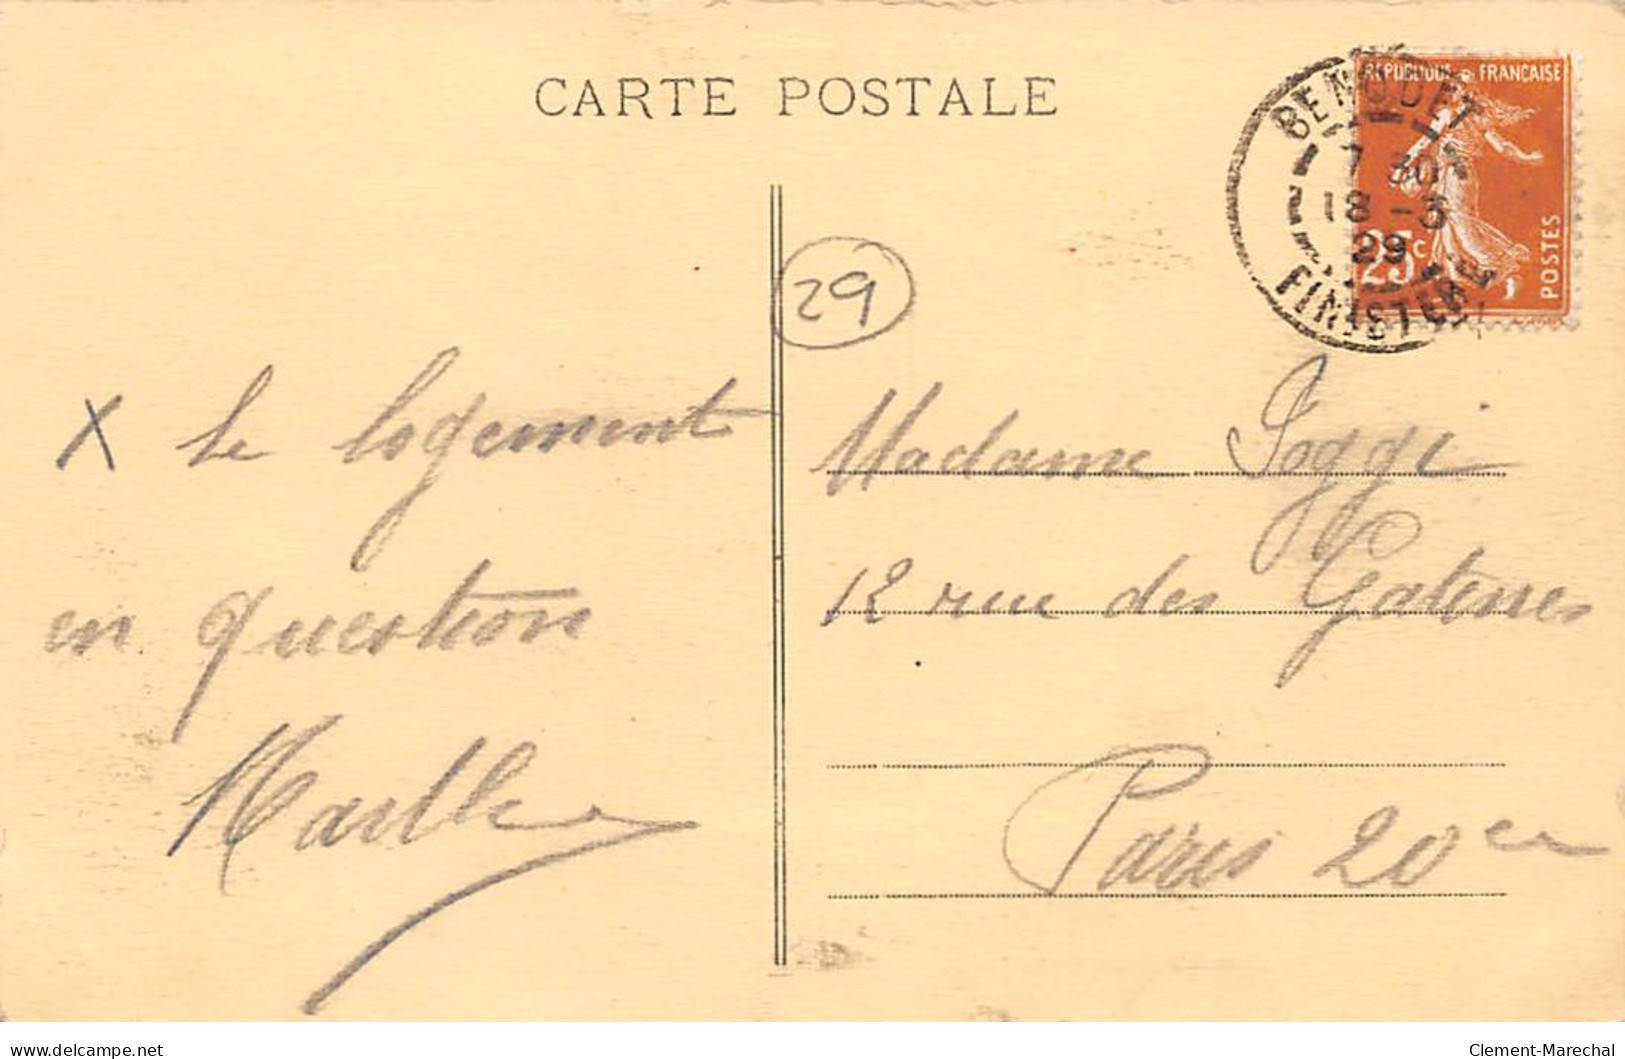 CARTE POSTALE
REPUBLIQUE FRANCAISE
BENODET
7 30
18 - 3
29
FINISTERE
25c
POSTES
29
X le logement
en question
Madame Poggi
12 rue des Gatines
Paris 20
www.delcampe.net
Clement-Marechal